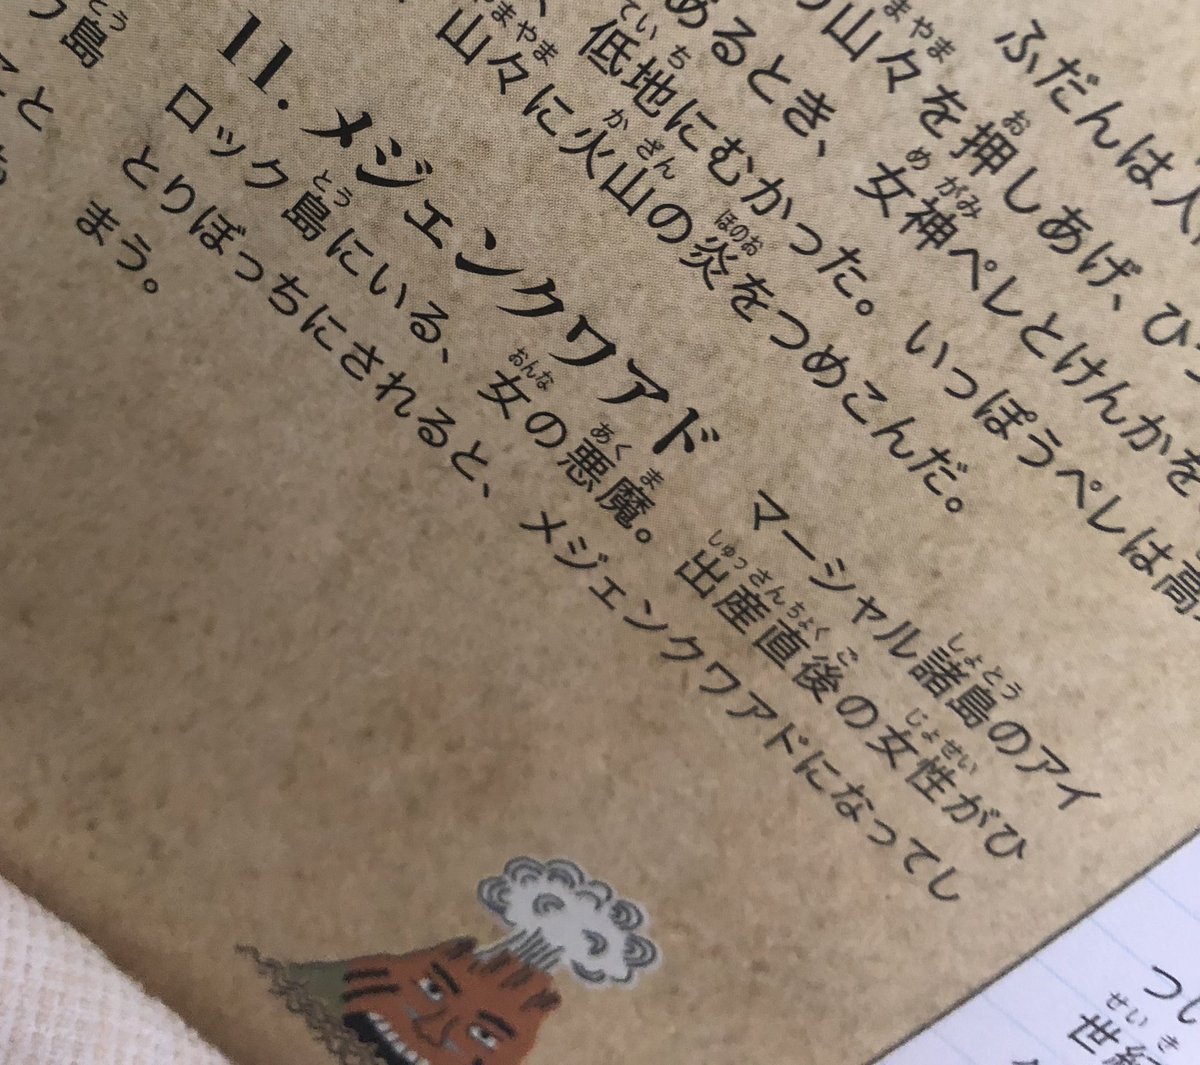 ふだんは人
山々を押しあげ、ひ
あるとき、女神ペレとけんかを
低地にむかった。いっぽうペレは高
山々に火山の炎をつめこんだ。
11. メジェンクワアド マーシャル諸島のアイ
ロック島にいる、女の悪魔。出産直後の女性がひ
とりぼっちにされると、メジェンクワアドになってし
まう。
島
と
つい
世紀